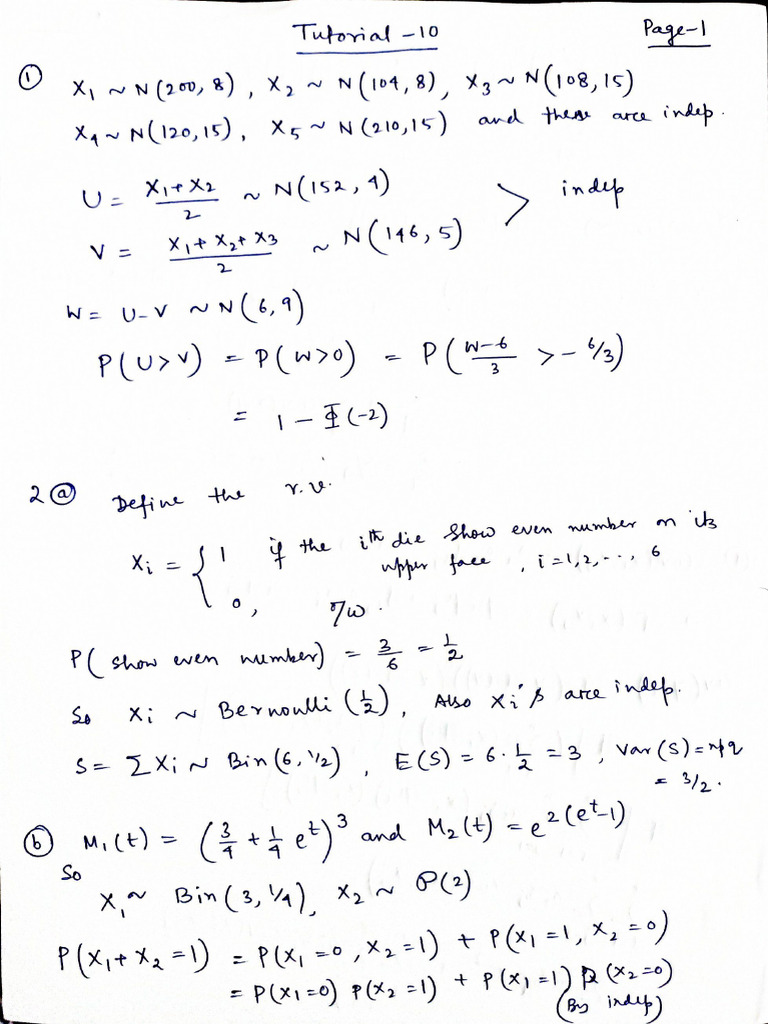 Tutorial - 10
Page-1
① X₁ ~ N(200, 8), X₂ ~ N(104, 8), X₃ ~ N(108, 15)
X₄ ~ N(120, 15), X₅ ~ N(210, 15) and these are indep.
U = (X₁ + X₂)/2 ~ N(152, 4) > indep
V = (X₁ + X₂ + X₃)/2 ~ N(146, 5)
W = U - V ~ N(6, 9)
P(U > V) = P(W > 0) = P((W-6)/3 > -6/3)
= 1 - Φ(-2)
2 ⓐ Define the r.v.
Xi = { 1 if the ith die show even number on its
upper face, i = 1, 2, ..., 6
0, o/w.
P(show even number) = 3/6 = 1/2
So Xi ~ Bernoulli (1/2), Also Xi's are indep.
S = ΣXi ~ Bin(6, 1/2), E(S) = 6·1/2 = 3, Var(S) = npq
= 3/2.
ⓑ M₁(t) = (3/4 + 1/4 e^t)^3 and M₂(t) = e^2(e^t-1)
So
X₁ ~ Bin(3, 1/4), X₂ ~ P(2)
P(X₁ + X₂ = 1) = P(X₁ = 0, X₂ = 1) + P(X₁ = 1, X₂ = 0)
= P(X₁ = 0) P(X₂ = 1) + P(X₁ = 1) P(X₂ = 0)
(By indep)